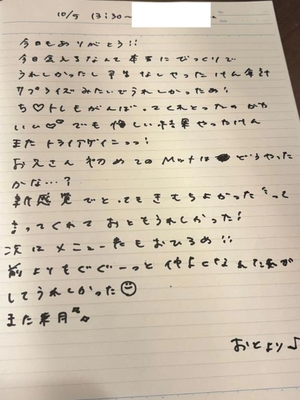 10/5 13:30〜
今日もありがとう!!
今日会えるなんて本当にびっくりで
うれしかったし予告なしやったけん余計
サプライズみたいでうれしかったぬ!
ち♡トレもがんばってくれとったのかわ
いい♡ でも悔しい結果やったけん
またトライアゲインっっ!
お兄さん初めてのMatは どうやった
かな…?
新感覚でとってもきもちよかったって
言ってくれておともうれしかった!
次はメニュー もおひろめ!!
前よりもぐぐーっと仲よくなれた気が
してうれしかった
また来月
おとより♪